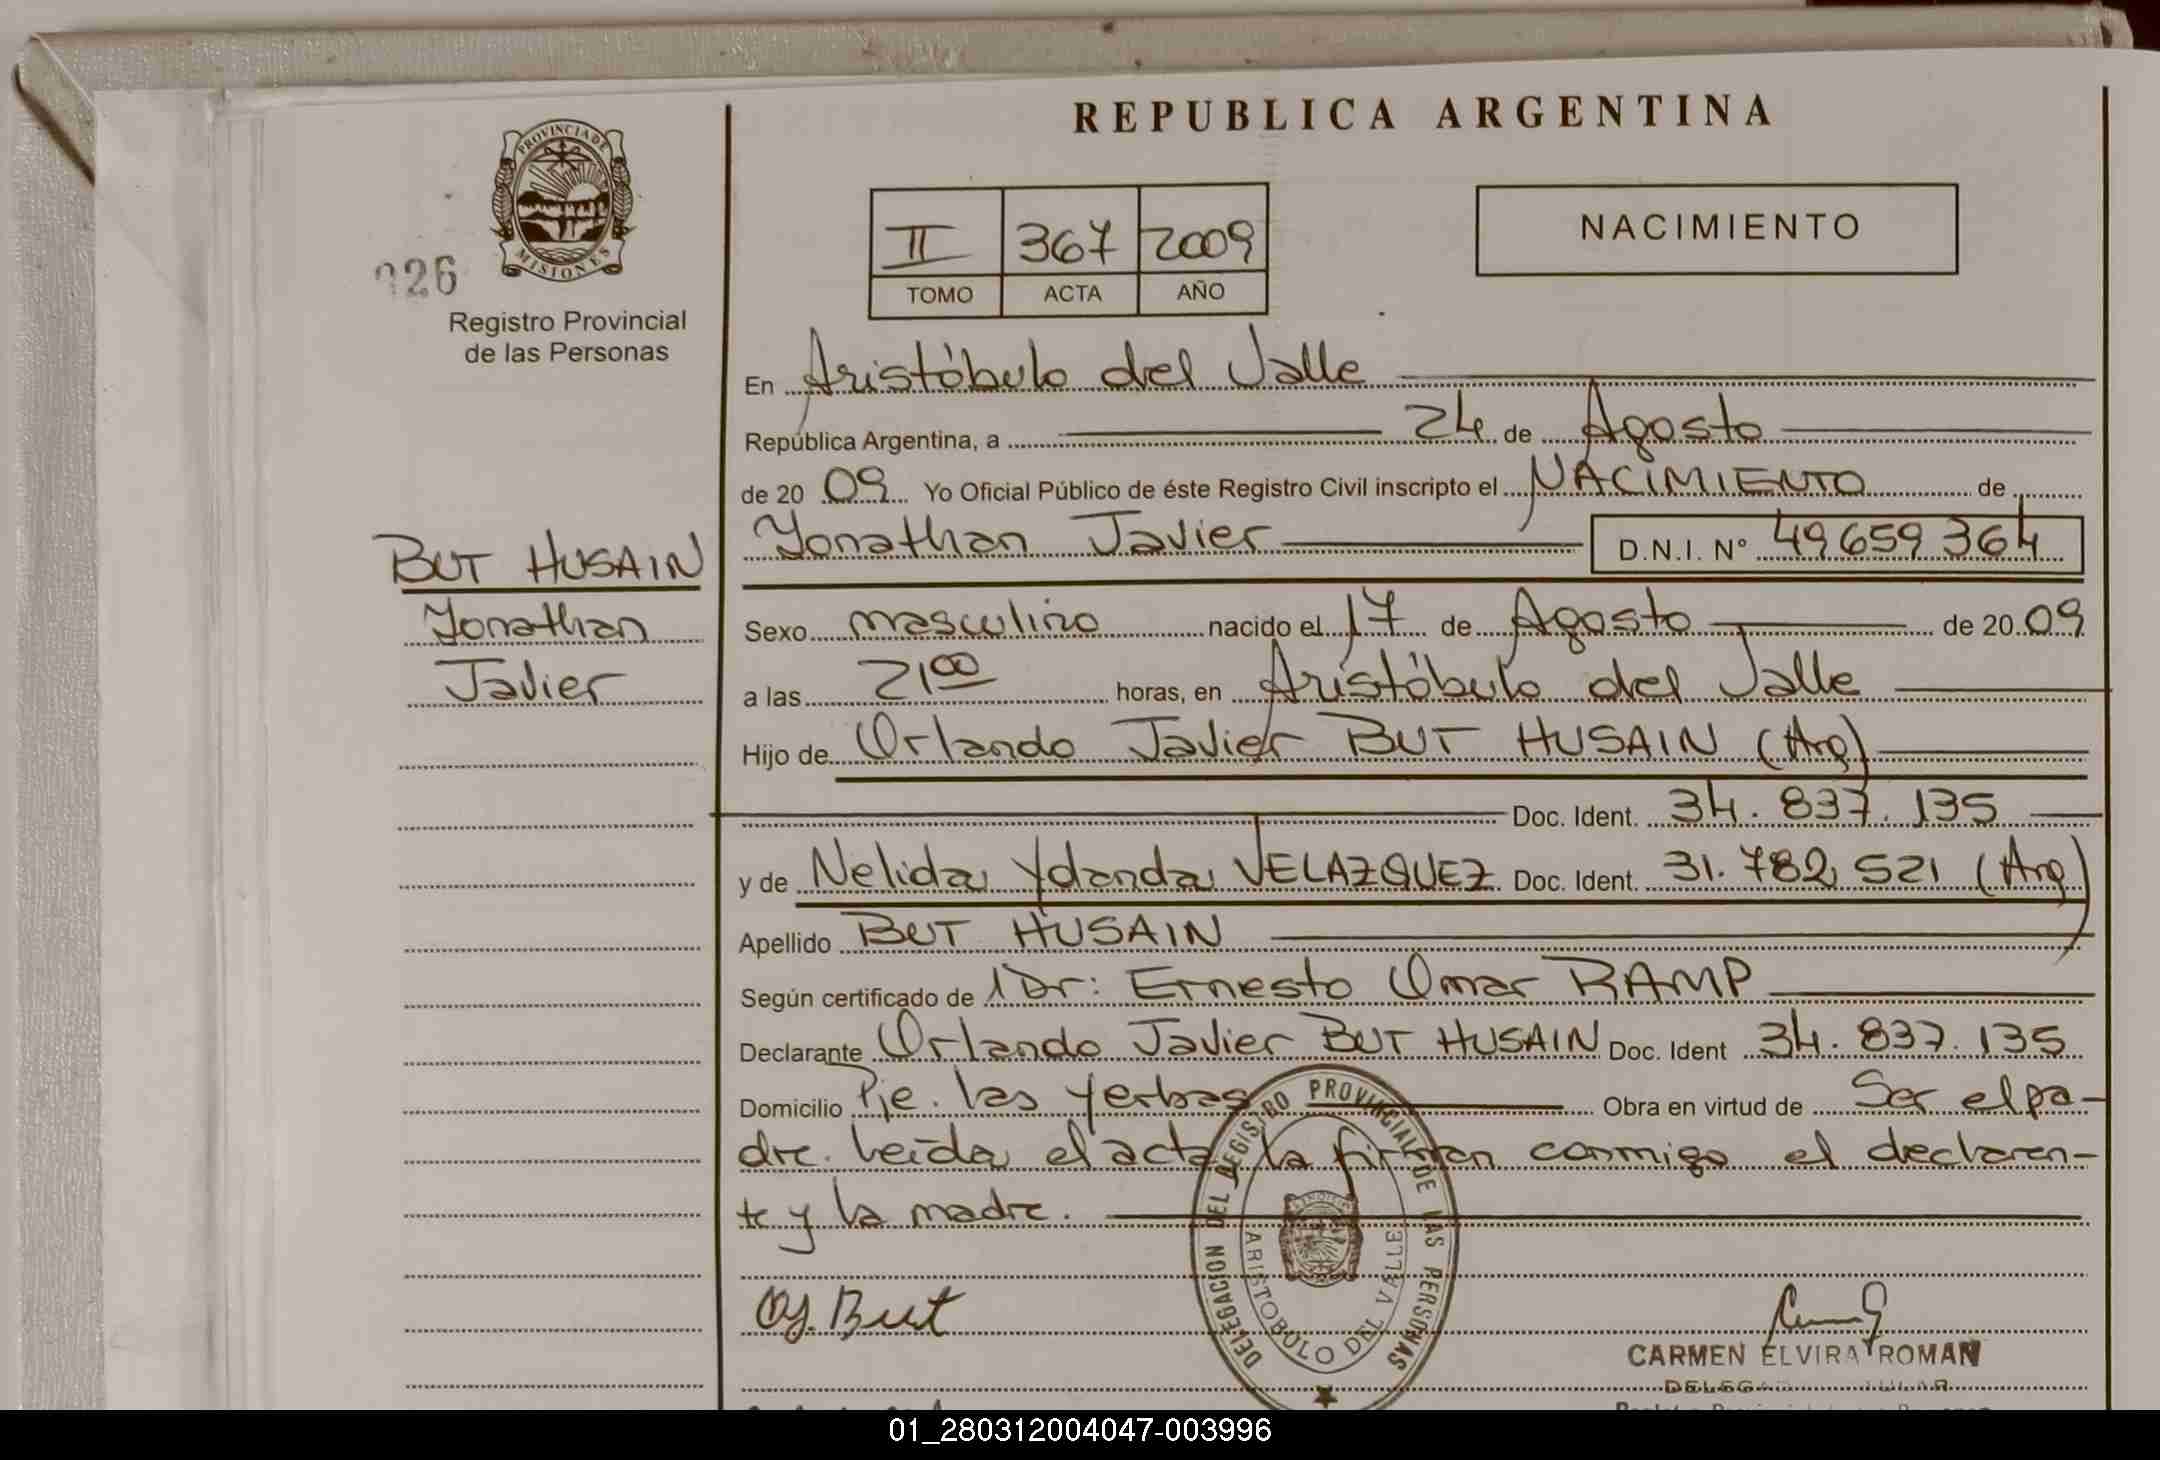 REPUBLICA ARGENTINA
PROVINCIA DE MISIONES
026
Registro Provincial
de las Personas
II 367 2009
TOMO ACTA AÑO
NACIMIENTO
En Aristóbulo del Valle
República Argentina, a 24 de Agosto
de 2009 Yo Oficial Público de éste Registro Civil inscripto el NACIMIENTO de
Yonathan Javier D.N.I. Nº 49659364
BUT HUSAIN
Yonathan
Javier
Sexo masculino nacido el 17 de Agosto de 2009
a las 21 00 horas, en Aristóbulo del Valle
Hijo de Orlando Javier BUT HUSAIN (Arg)
Doc. Ident. 34.837.135
y de Nelida Yolanda VELAZQUEZ Doc. Ident. 31.782.521 (Arg)
Apellido BUT HUSAIN
Según certificado de Dr: Ernesto Omar RAMP
Declarante Orlando Javier BUT HUSAIN Doc. Ident 34.837.135
Domicilio Pje. las Yerbas Obra en virtud de Ser el pa-
dre. Leída el acta la firman conmigo el declaran-
te y la madre.
DELEGACION DEL REGISTRO PROVINCIAL DE LAS PERSONAS
ARISTOBULO DEL VALLE
OJ. But
CARMEN ELVIRA ROMAN
01_280312004047-003996